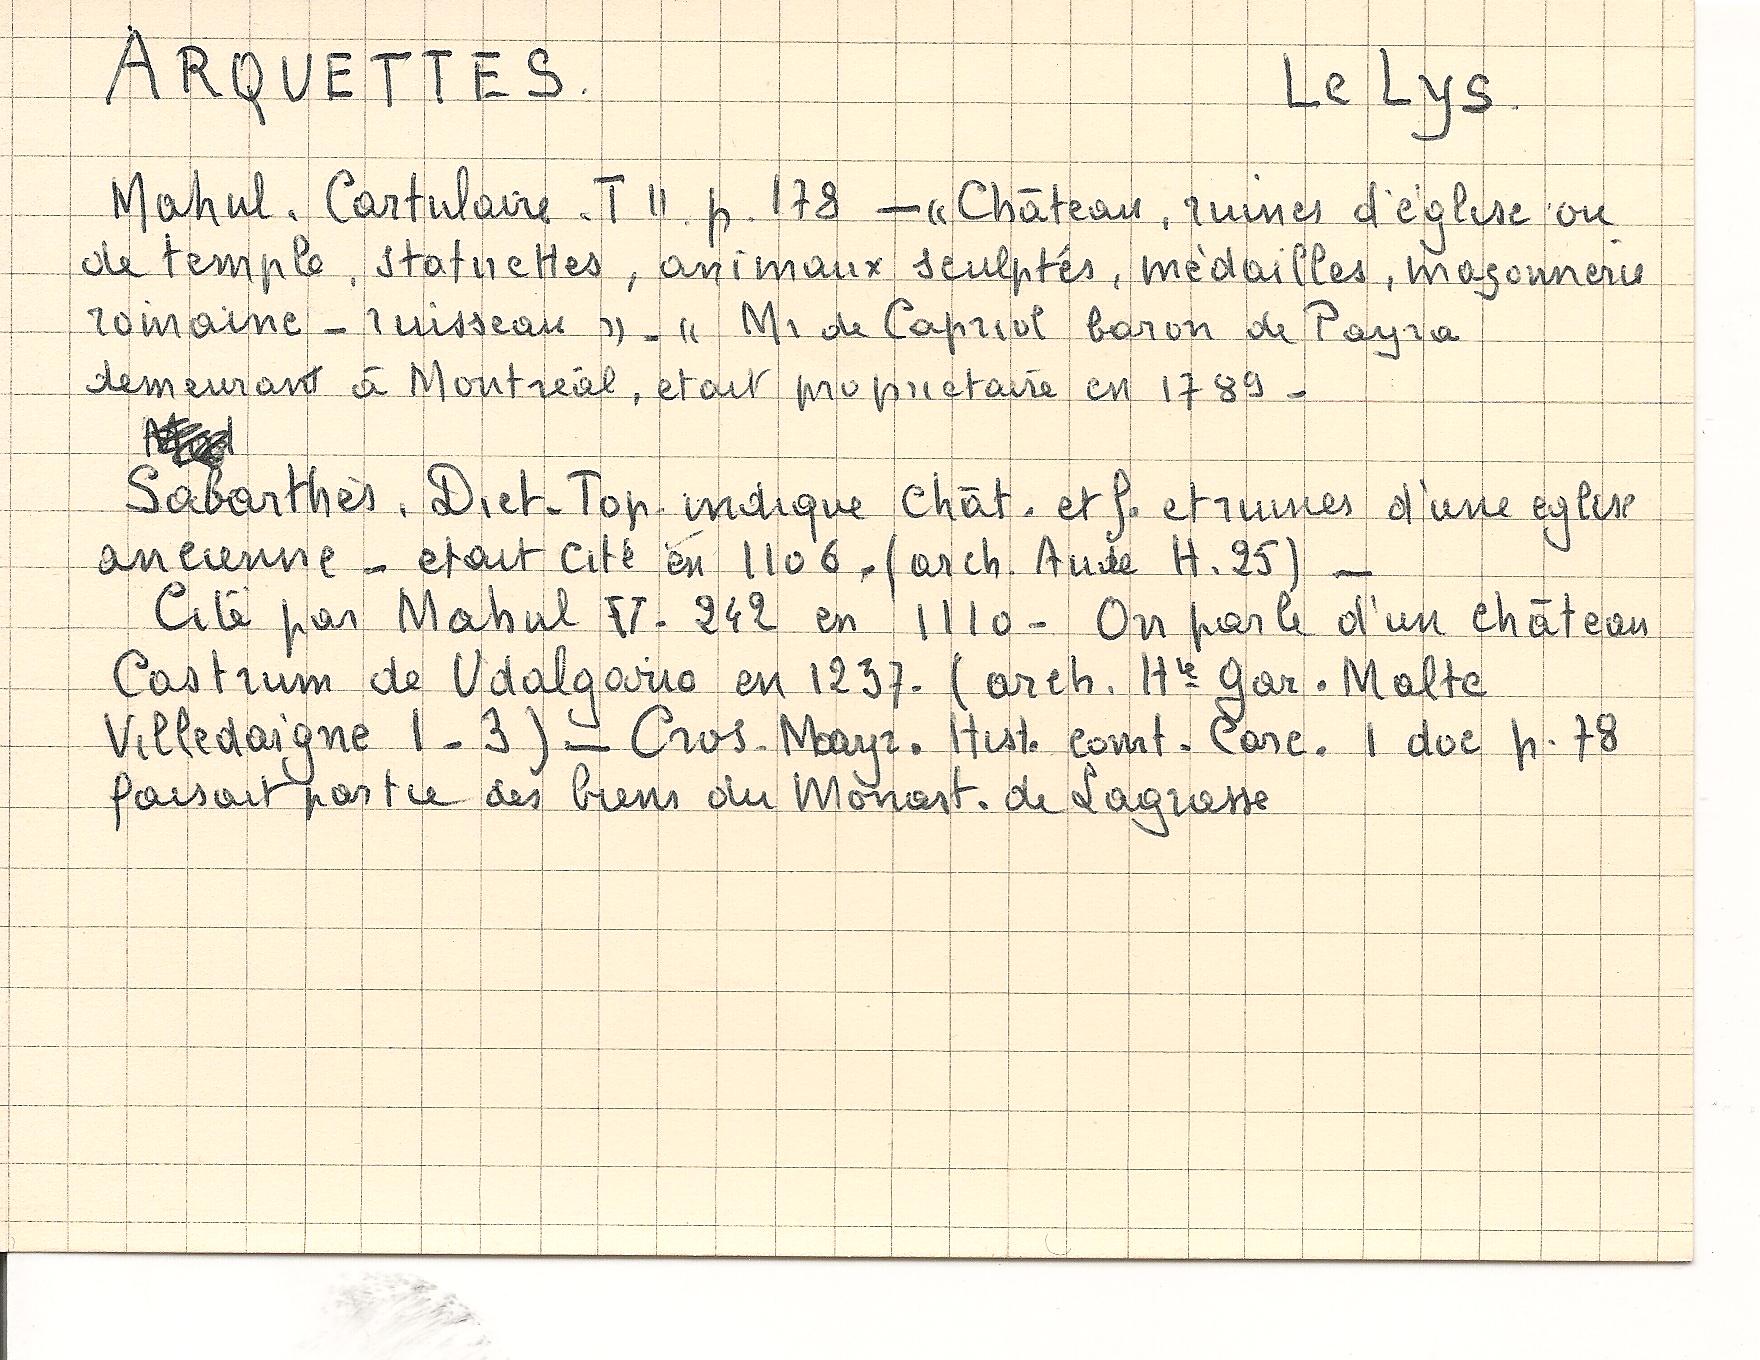 ARQUETTES. Le Lys.
Mahul. Cartulaire. T II. p. 178 — « Château, ruines d'église ou
de temple, statuettes, animaux sculptés, médailles, maçonnerie
romaine - ruisseau » - « Mr de Capriol baron de Payra
demeurant à Montréal, etait proprietaire en 1789 -
Sabarthès. Dict. Top. indique Chât. et f. et ruines d'une eglise
ancienne - etait cité en 1106. (arch. Aude H. 25) —
Cité par Mahul 242 en 1110 - On parle d'un château
Castrum de en 1237. (arch. Hte Gar. Malte
Villedaigne 1 - 3) — Cros. Mayr. Hist. comt. Carc. 1 doc p. 78
faisait partie des biens du Monast. de Lagrasse